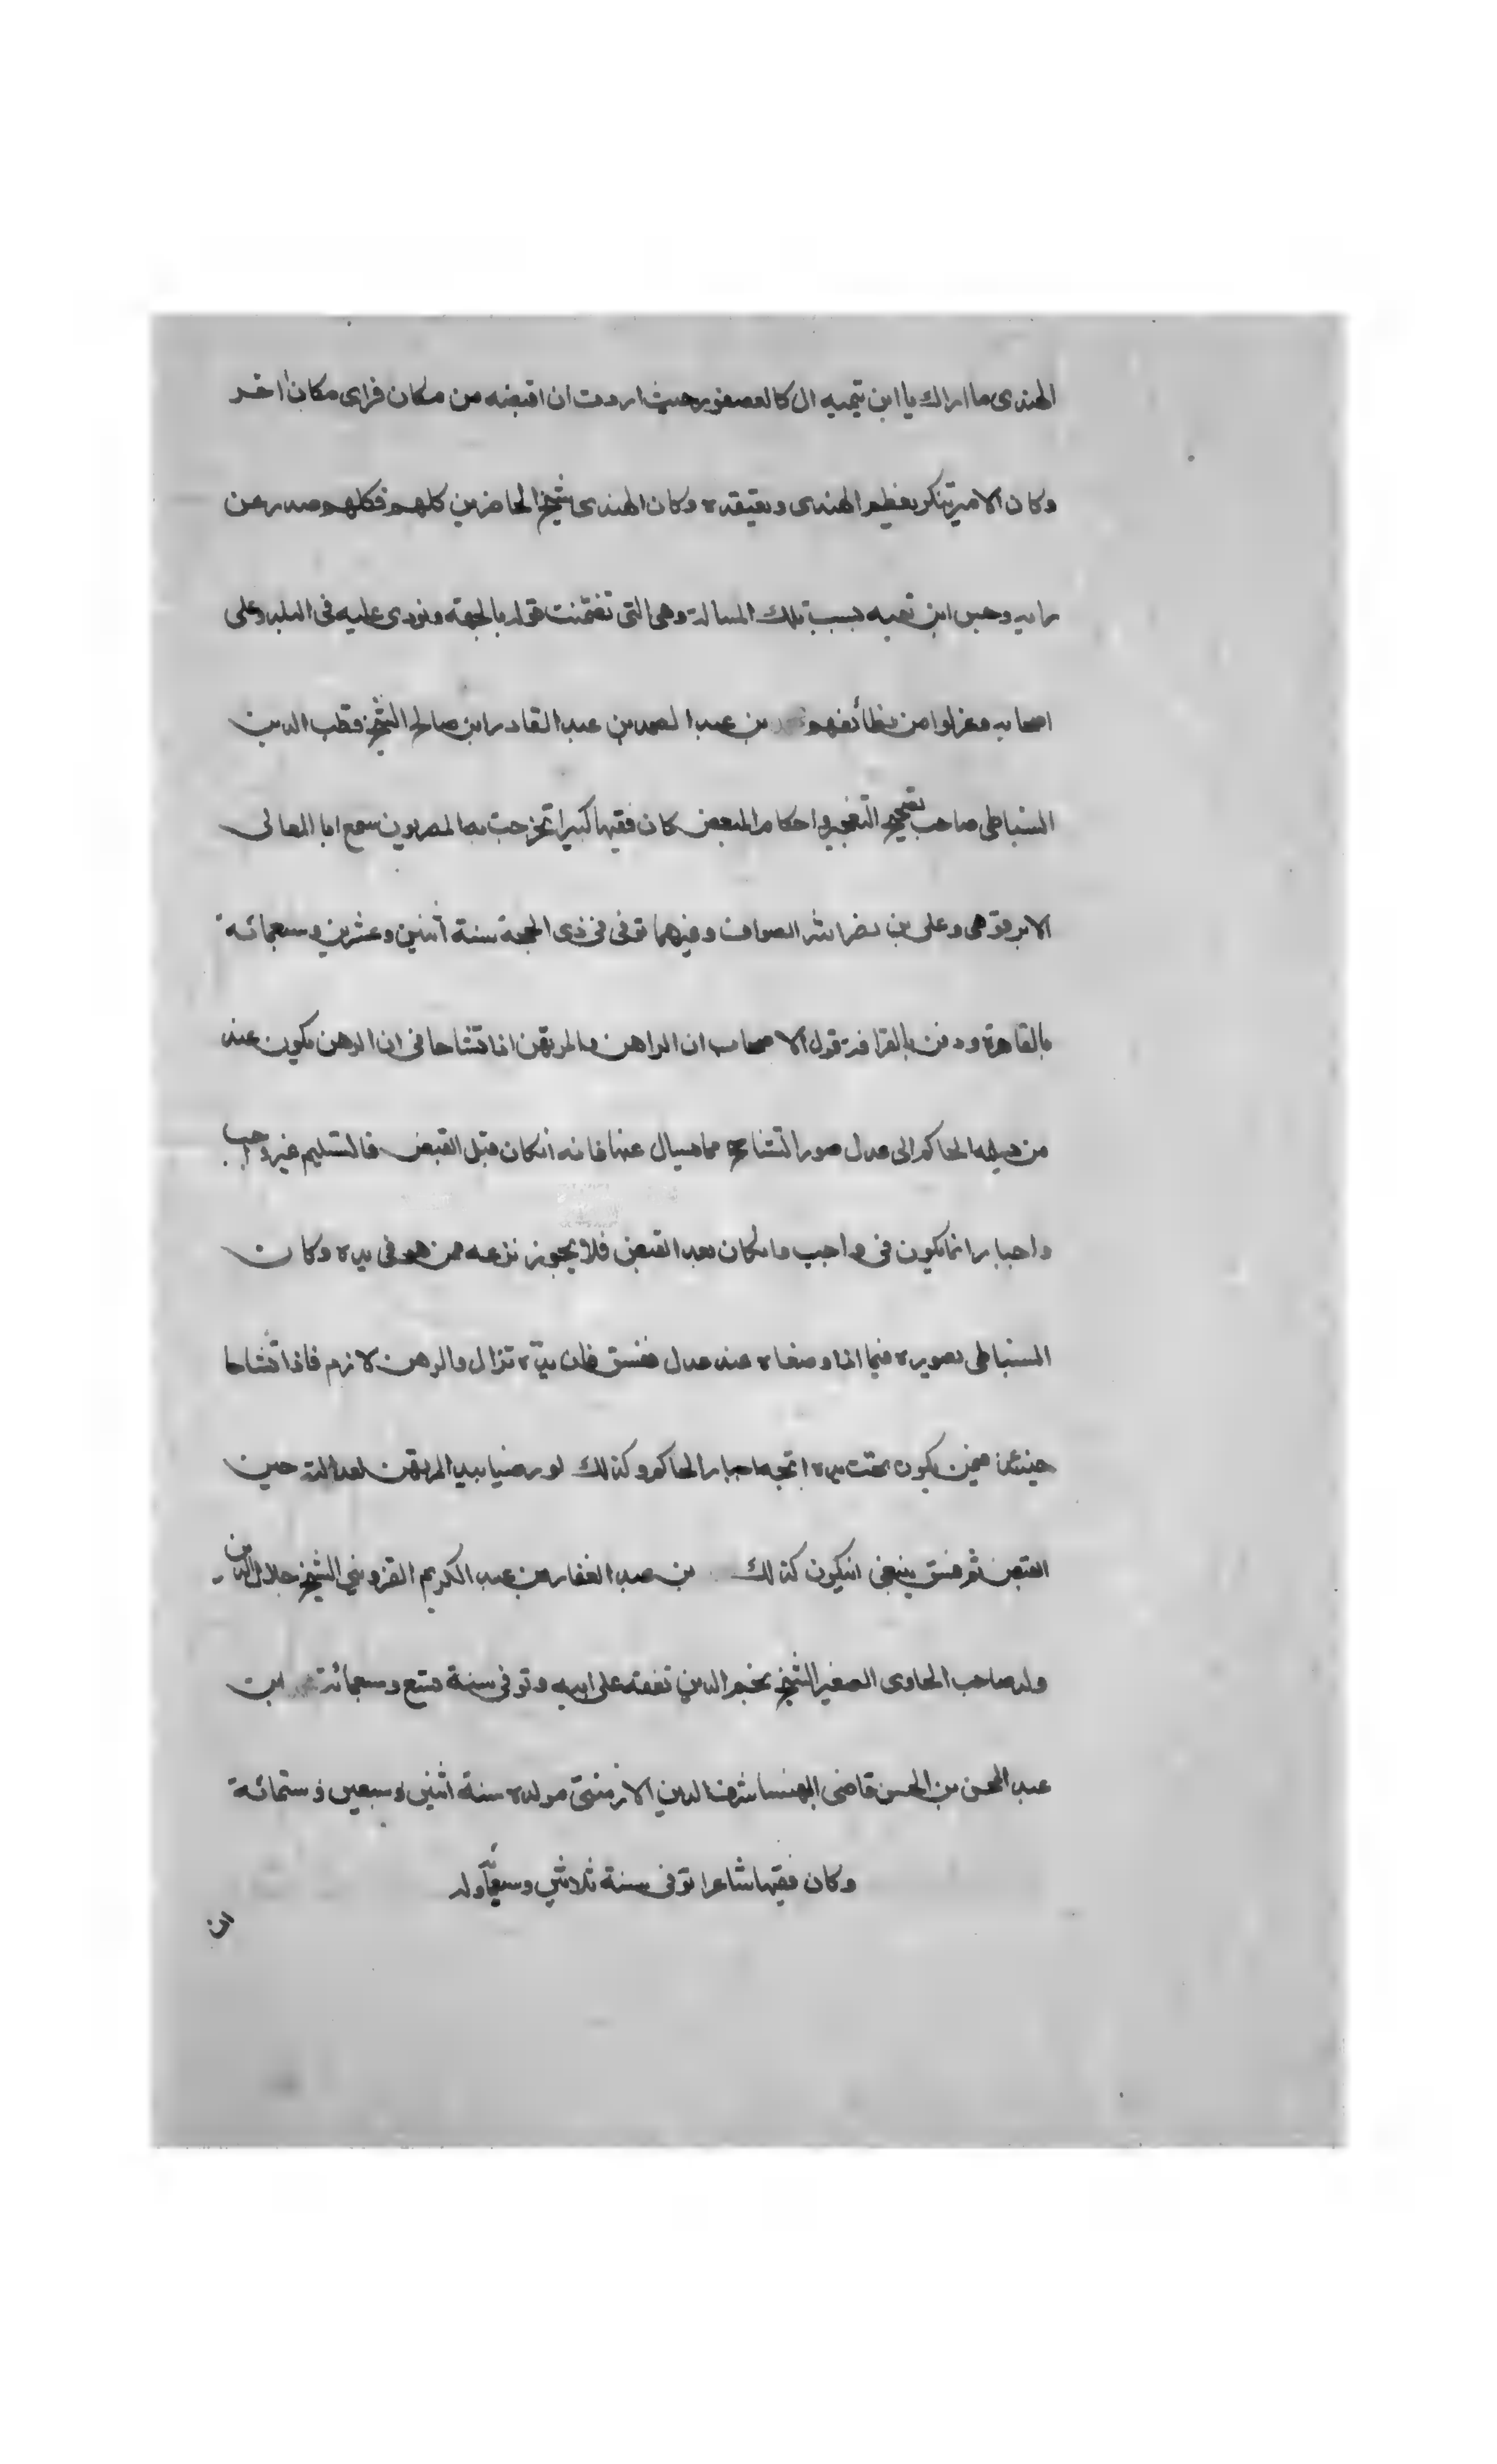 الهندى ما اراك يا ابن تيميه الا كالعصفور حيث اردت ان اقبضه من مكان فراى مكان اخر
وكان الامير تنكز يعظم الهندى ويعتقده وكان الهندى شيخ الحاضرين كلهم فكلهم صدر عن
رايه وحبس ابن تيميه بسبب تلك المسالة وهى التى تضمنت قوله بالجهة ونودى عليه فى البلد وعلى
اصحابه وعزلوا من وظائفهم محمد بن عبد الصمد بن عبد القادر ابن صالح الشيخ قطب الدين
السنباطى صاحب تصحيح التعجيز واحكام المبعض كان فقيها كبيرا تخرجت به المصريون سمع ابا المعالى
الابرقوهى وعلى بن نصر الله الصواف وغيرهما توفى فى ذى الحجة سنة اثنين وعشرين وسبعمائة
بالقاهرة ودفن بالقرافة قول الاصحاب ان الراهن والمرتهن اذا تشاحا فى ان الرهن يكون عند
من يسلمه الحاكم الى عدل صور التشاح مما يسال عنها فانه انكان قبل القبض فالتسليم غير واجب
واجبار انما يكون فى واجب وانكان بعد القبض فلا يجوز نزعه ممن هو فى يده وكان
السنباطى يصوره فيما اذا وضعاه عند عدل ففسق فان يده تزال والرهن لازم فاذا تشاحا
حينئذ فيمن يكون تحت يده اتجه اجبار الحاكم وكذلك لو رضيا بيد المرتهن لعدالته حين
القبض ثم فسق ينبغى انيكون كذلك بن عبد الغفار بن عبد الكريم القزوينى الشيخ جلال الدين
ولد صاحب الحاوى الصغير الشيخ نجم الدين تفقه على ابيه وتوفى سنة تسع وسبعمائة محمد ابن
عبد المحسن بن الحسن قاضى البهنسا شرف الدين الارمنتى مولده سنة اثنين وسبعين وستمائة
وكان فقيها شاعرا توفى سنة ثلاثين وسبعمائة وله
ان